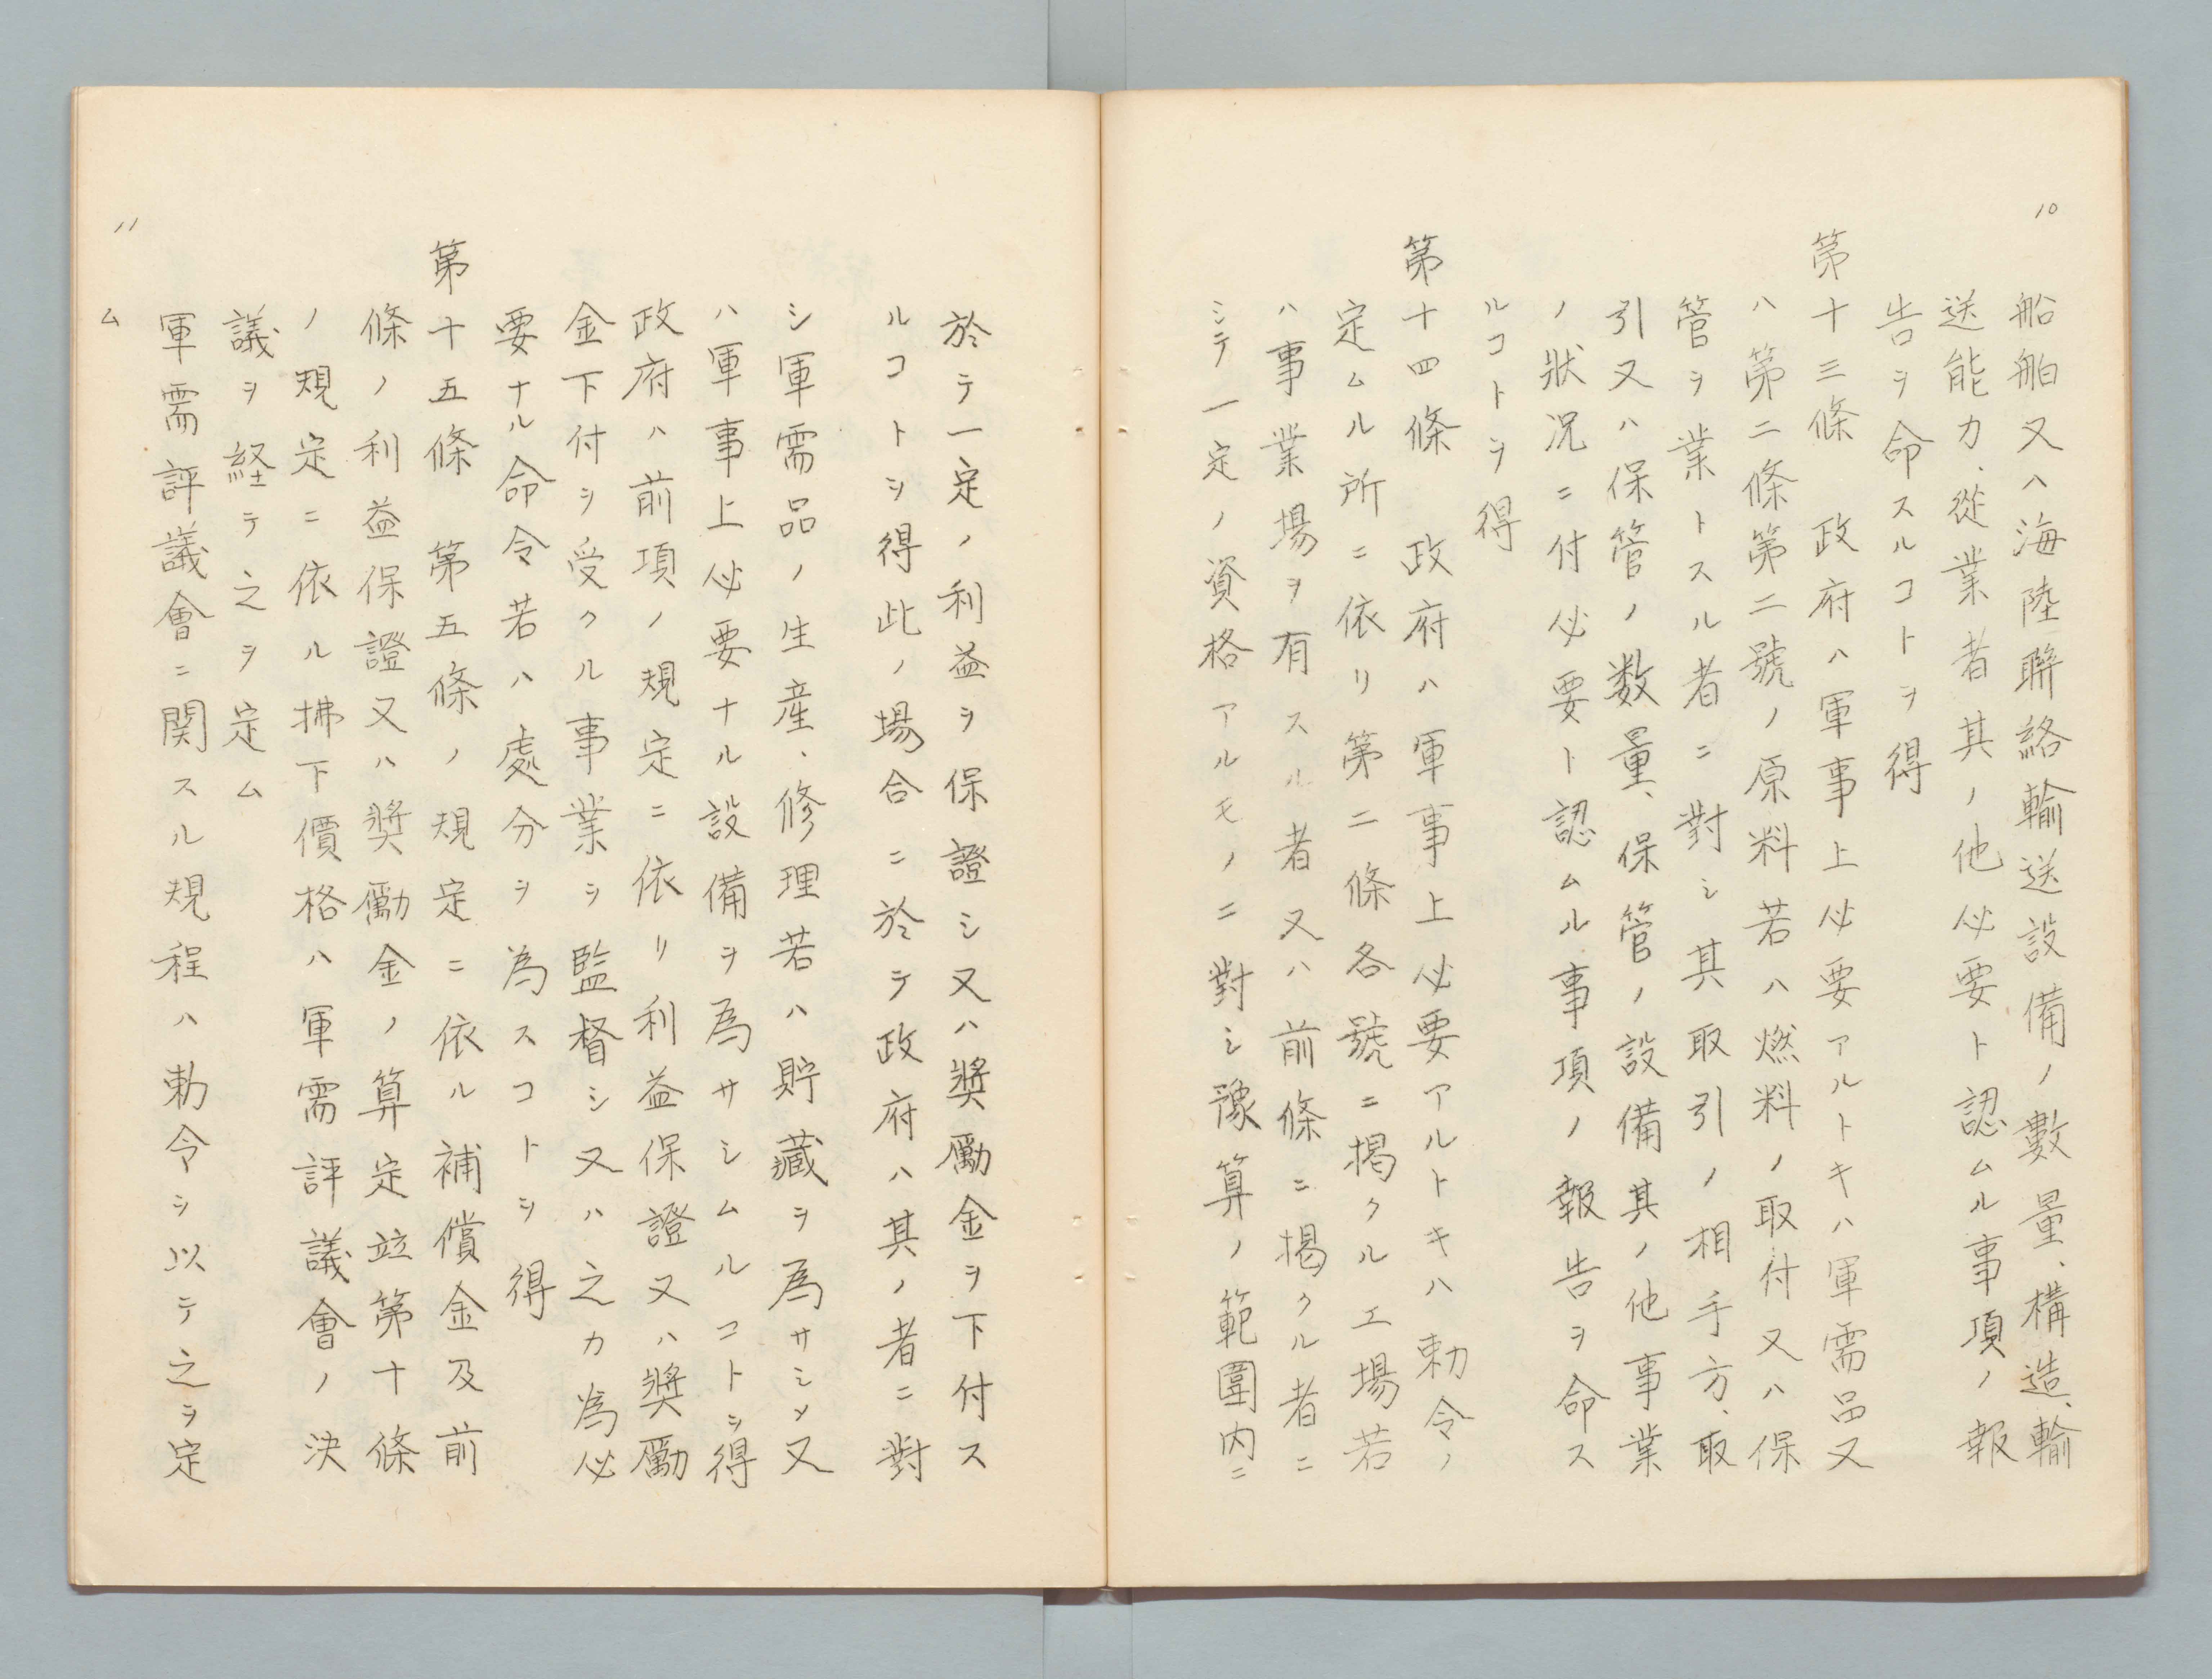 10
船舶又ハ海陸聯絡輸送設備ノ數量、構造、輸
送能力、從業者其ノ他必要ト認ムル事項ノ報
告ヲ命スルコトヲ得
第十三條 政府ハ軍事上必要アルトキハ軍需品又
ハ第二條第二號ノ原料若ハ燃料ノ取付又ハ保
管ヲ業トスル者ニ對シ其取引ノ相手方、取
引又ハ保管ノ数量、保管ノ設備其ノ他事業
ノ狀況ニ付必要ト認ムル事項ノ報告ヲ命ス
ルコトヲ得
第十四條 政府ハ軍事上必要アルトキハ勅令ノ
定ムル所ニ依リ第二條各號ニ掲クル工場若
ハ事業場ヲ有スル者又ハ前條ニ掲クル者ニ
シテ一定ノ資格アルモノニ對シ豫算ノ範圍内ニ
於テ一定ノ利益ヲ保證シ又ハ奬勵金ヲ下付ス
ルコトヲ得此ノ場合ニ於テ政府ハ其ノ者ニ對
シ軍需品ノ生産、修理若ハ貯藏ヲ為サシメ又
ハ軍事上必要ナル設備ヲ為サシムルコトヲ得
政府ハ前項ノ規定ニ依リ利益保證又ハ奬勵
金下付ヲ受クル事業ヲ監督シ又ハ之カ為必
要ナル命令若ハ處分ヲ為スコトヲ得
第十五條 第五條ノ規定ニ依ル補償金及前
條ノ利益保證又ハ奬勵金ノ算定竝第十條
ノ規定ニ依ル拂下價格ハ軍需評議會ノ決
議ヲ経テ之ヲ定ム
軍需評議會ニ関スル規程ハ勅令ヲ以テ之ヲ定
ム
11